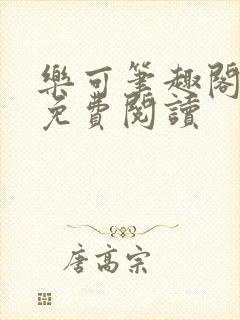 樂可筆趣閣
免費閱讀
唐高宗